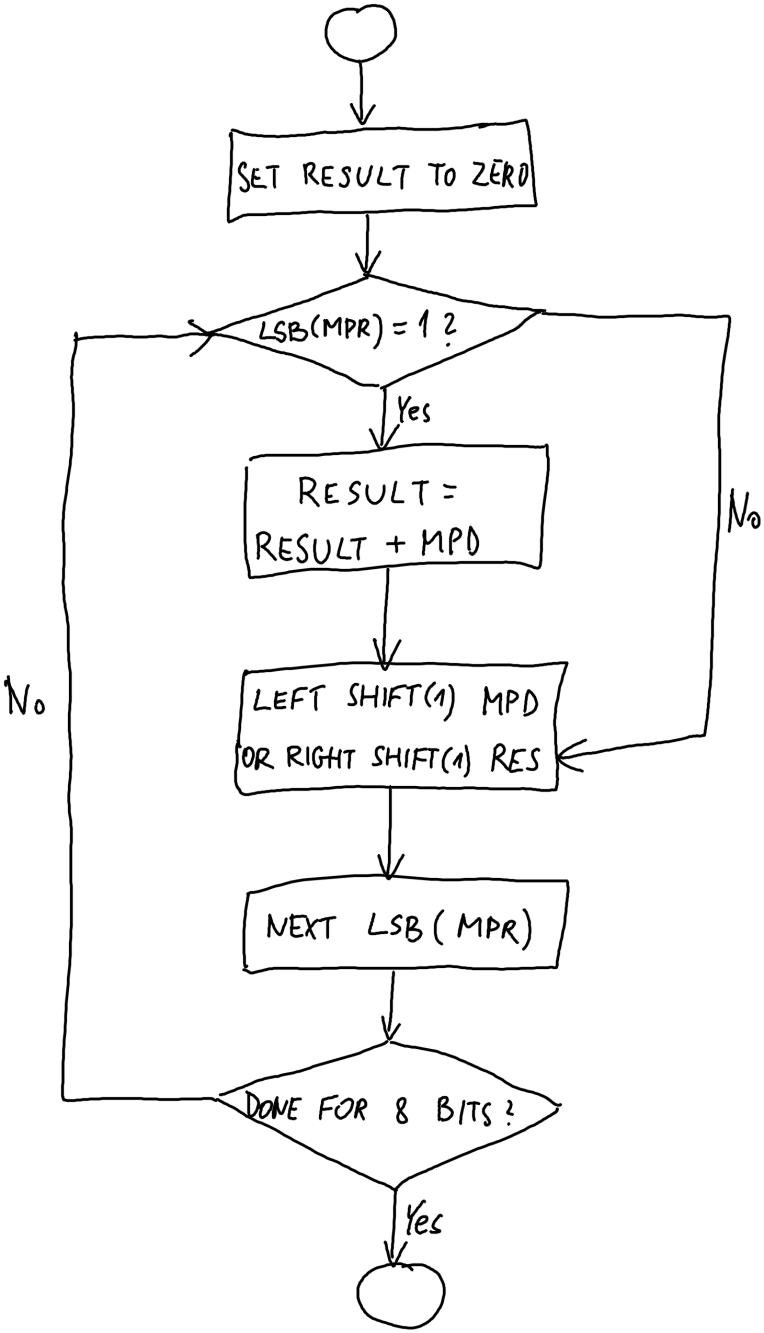 SET RESULT TO ZERO
LSB(MPR) = 1 ?
Yes
RESULT =
RESULT + MPD
No
LEFT SHIFT(1) MPD
OR RIGHT SHIFT(1) RES
No
NEXT LSB (MPR)
DONE FOR 8 BITS ?
Yes